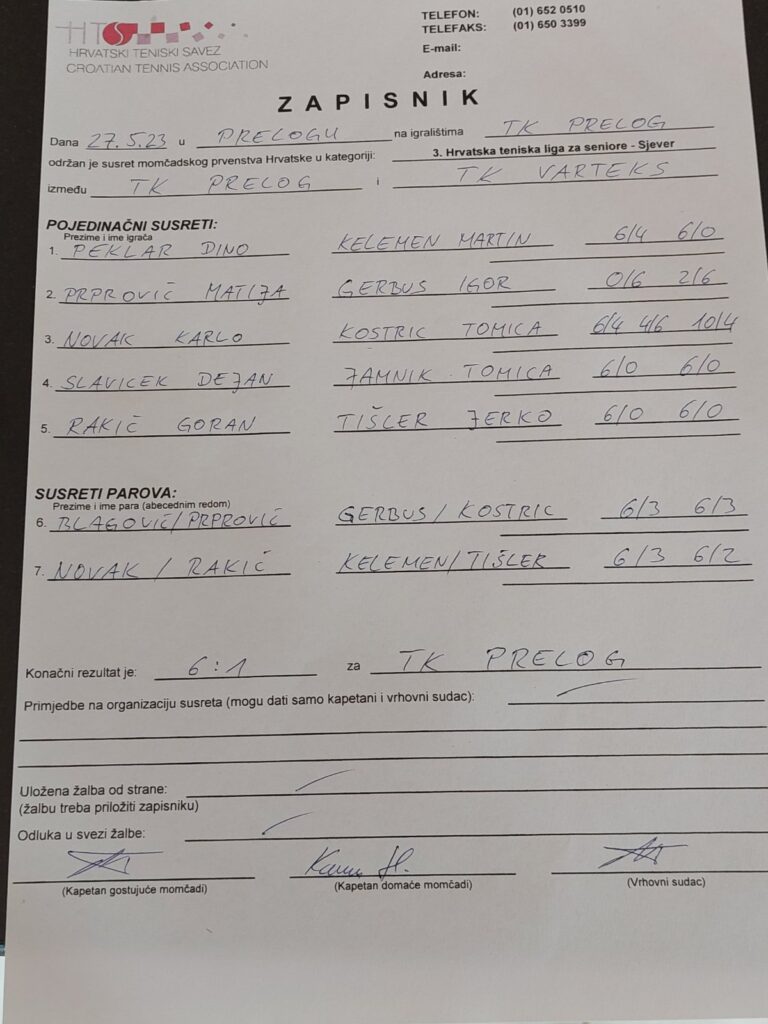 HTS
HRVATSKI TENISKI SAVEZ
CROATIAN TENNIS ASSOCIATION
TELEFON: (01) 652 0510
TELEFAKS: (01) 650 3399
E-mail:
Adresa:
ZAPISNIK
Dana 27.5.23 u PRELOGU na igralištima TK PRELOG
održan je susret momčadskog prvenstva Hrvatske u kategoriji: 3. Hrvatska teniska liga za seniore - Sjever
između TK PRELOG i TK VARTEKS
POJEDINAČNI SUSRETI:
Prezime i ime igrača
1. PEKLAR DINO KELEMEN MARTIN 6/4 6/0
2. PRPROVIĆ MATIJA GERBUS IGOR 0/6 2/6
3. NOVAK KARLO KOSTRIC TOMICA 6/4 4/6 10/4
4. SLAVICEK DEJAN JAMNIK TOMICA 6/0 6/0
5. RAKIĆ GORAN TIŠLER JERKO 6/0 6/0
SUSRETI PAROVA:
Prezime i ime para (abecednim redom)
6. BLAGOVIĆ/PRPROVIĆ GERBUS / KOSTRIC 6/3 6/3
7. NOVAK / RAKIĆ KELEMEN/TIŠLER 6/3 6/2
Konačni rezultat je: 6:1 za TK PRELOG
Primjedbe na organizaciju susreta (mogu dati samo kapetani i vrhovni sudac):
Uložena žalba od strane:
(žalbu treba priložiti zapisniku)
Odluka u svezi žalbe:
(Kapetan gostujuće momčadi) (Kapetan domaće momčadi) (Vrhovni sudac)